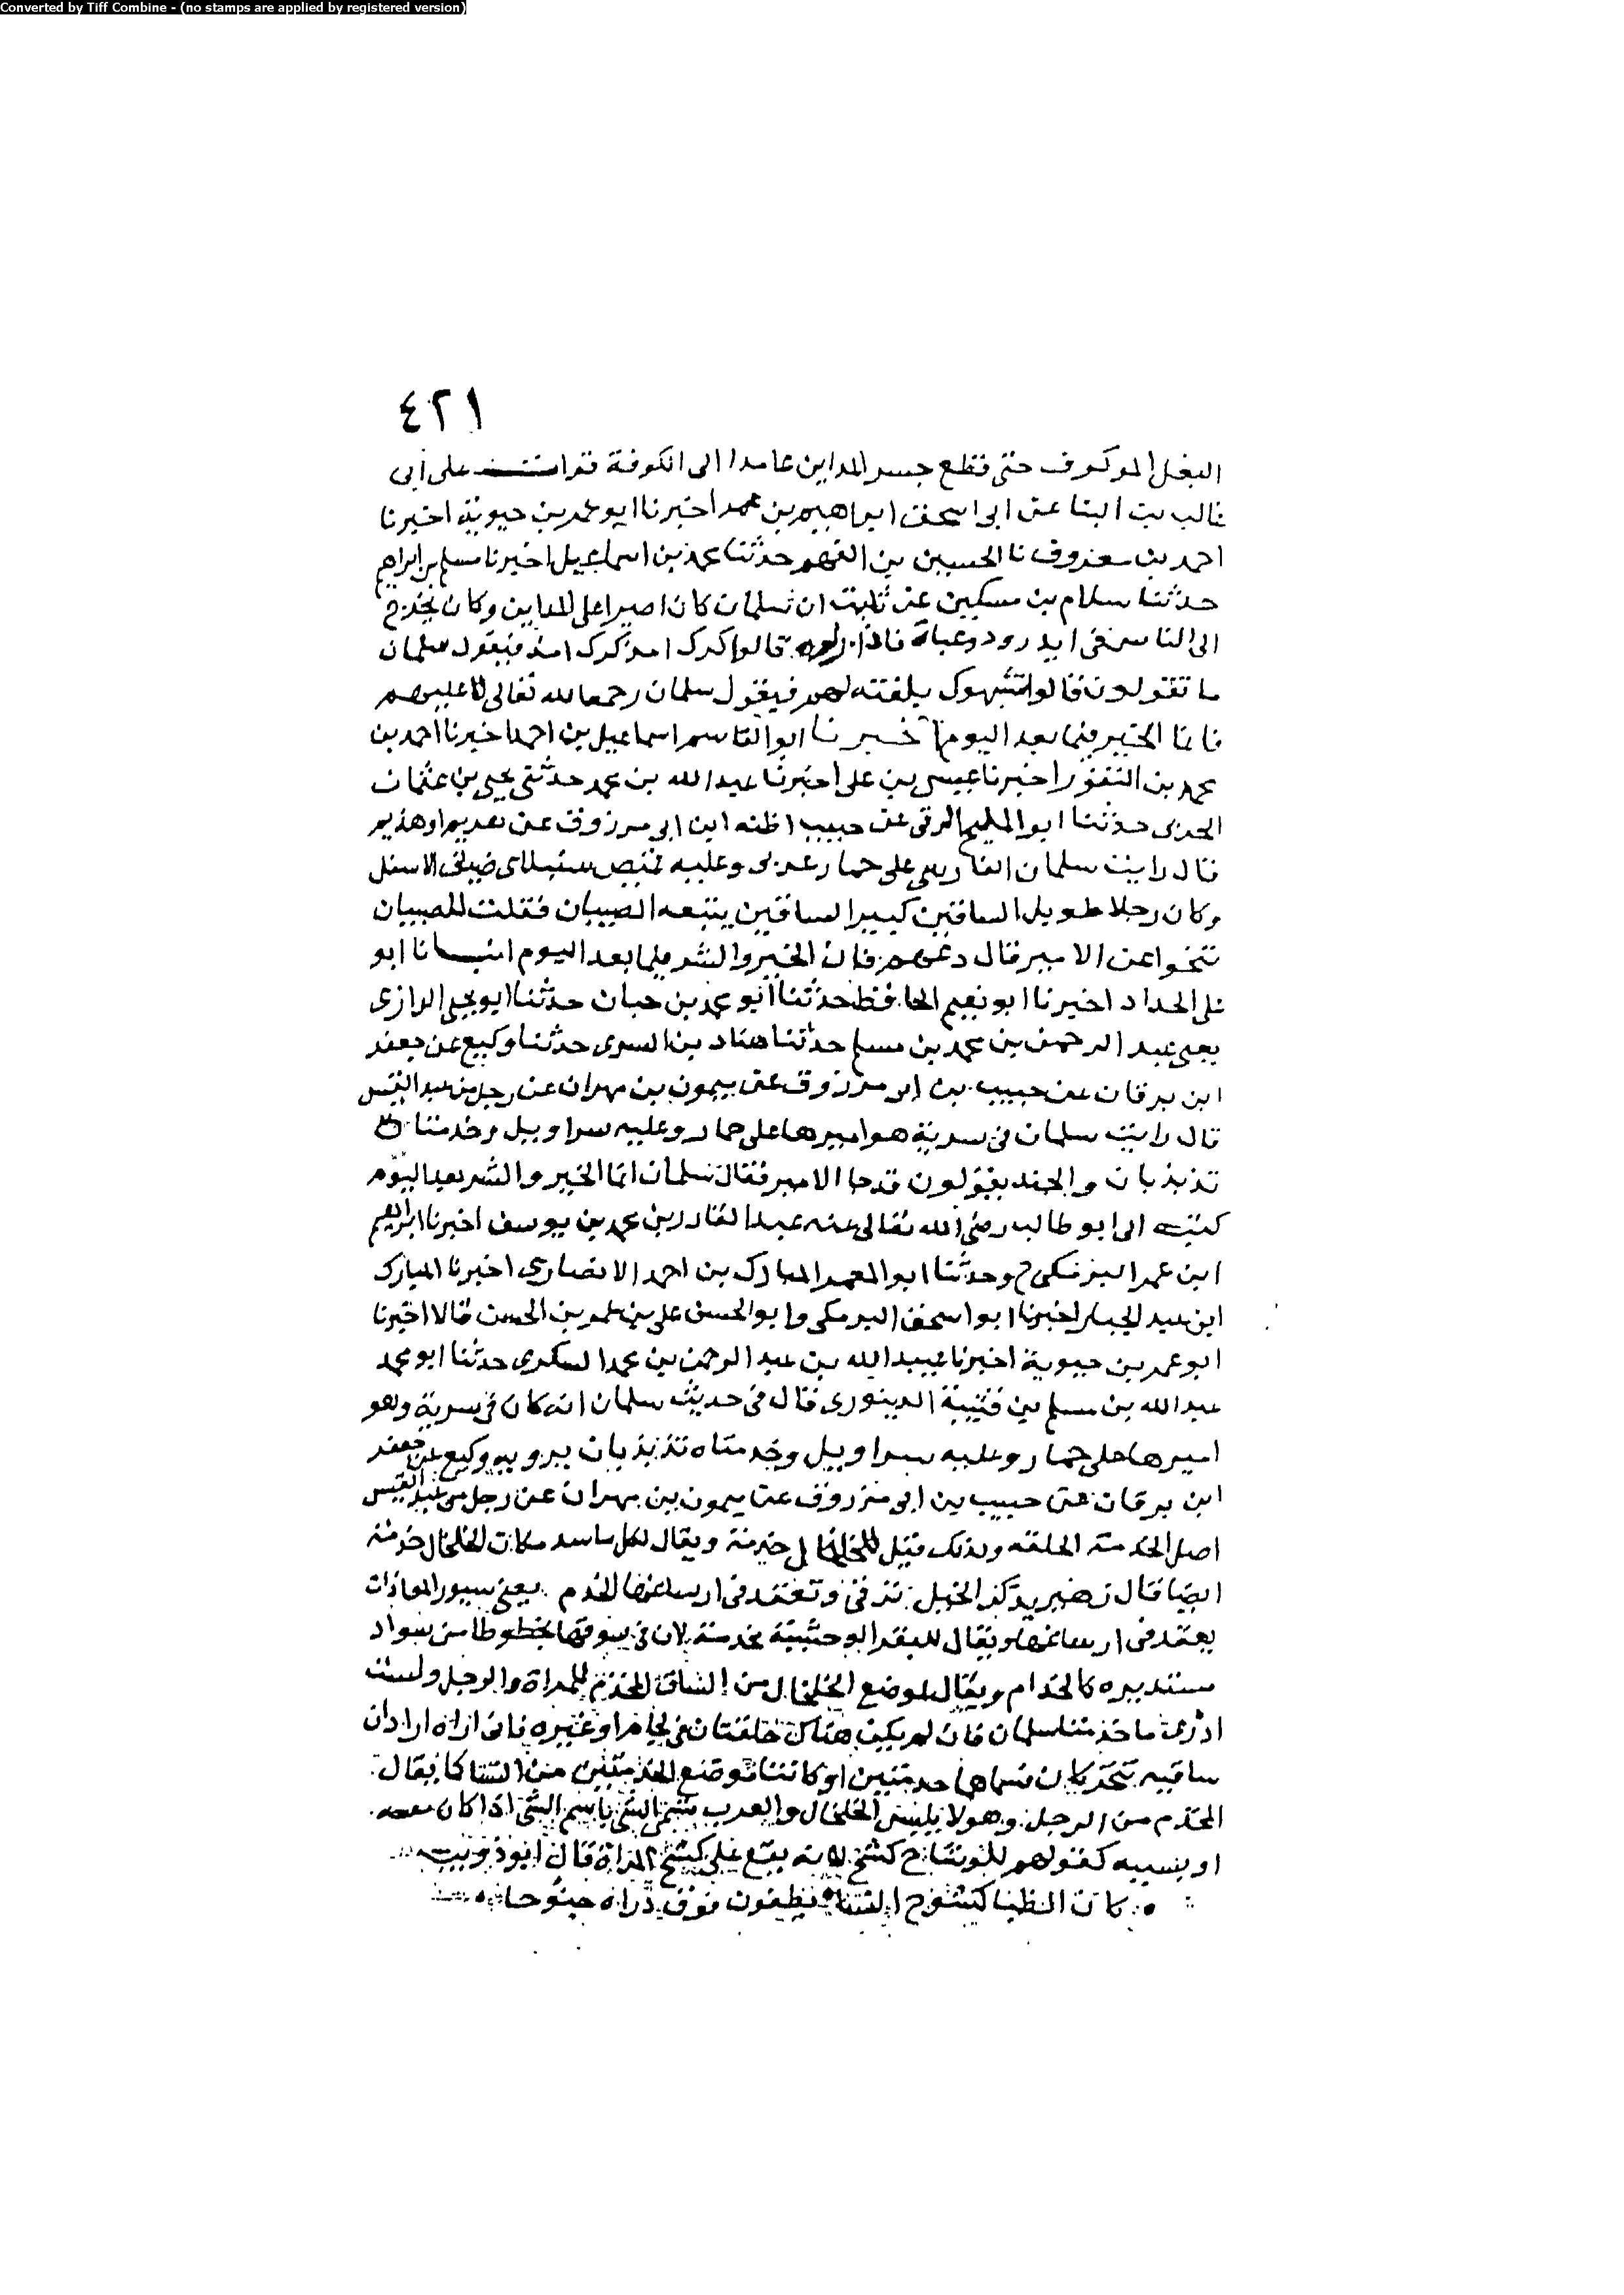 Converted by Tiff Combine - (no stamps are applied by registered version)
٤٢١
البغل الموكوف حتى قطع جسر المداين عامدا الى الكوفة قرات على ابى
غالب بن البنا عن ابى اسحق ابراهيم بن عمر اخبرنا ابو عمر بن حيوية اخبرنا
احمد بن معروف نا الحسين بن الفهم حدثنا محمد بن اسماعيل اخبرنا مسلم بن ابراهيم
حدثنا سلام بن مسكين عن ثابت ان سلمان كان اميرا على المداين وكان يخرج
الى الناس فى اندرورد وعباة فاذا راوه قالوا كرك امذ كرك امذ فيقول سلمان
ما تقولون قالوا يشبهوك بلعبته لهم فيقول سلمان رحمه الله تعالى لا عليهم
فانما الخير فيما بعد اليوم اخبرنا ابو القاسم اسماعيل بن احمد اخبرنا احمد بن
محمد بن النقور اخبرنا عيسى بن على اخبرنا عبد الله بن محمد حدثنى يحيى بن عثمان
الحربى حدثنا ابو المليح الرقى عن حبيب اظنه ابن ابى مرزوق عن هريم او هذيم
قال رايت سلمان الفارسى على حمار عرى وعليه قميص سنبلانى ضيق الاسفل
وكان رجلا طويل الساقين كبير الساقين يتبعه الصبيان فقلت للصبيان
تنحوا عن الامير فقال دعهم فان الخير والشر فيما بعد اليوم انبانا ابو
على الحداد اخبرنا ابو نعيم الحافظ حدثنا ابو محمد بن حيان حدثنا ابو يحيى الرازى
يعنى عبد الرحمن بن محمد بن مسلم حدثنا هناد بن السرى حدثنا وكيع عن جعفر
ابن برقان عن حبيب بن ابى مرزوق عن ميمون بن مهران عن رجل من عبد القيس
قال رايت سلمان فى سرية هو اميرها على حمار وعليه سراويل وخدمتاه
تذبذبان والجند يقولون قد جا الامير فقال سلمان انما الخير والشر بعد اليوم
كتب الى ابو طالب رضى الله تعالى عنه عبد القادر بن محمد بن يوسف اخبرنا ابراهيم
ابن عمر البرمكى ح وحدثنا ابو المعمر المبارك بن احمد الانصارى اخبرنا المبارك
ابن عبد الجبار اخبرنا ابو اسحق البرمكى وابو الحسن على بن عمر بن الحسن قالا اخبرنا
ابو عمر بن حيوية اخبرنا عبيد الله بن عبد الرحمن بن محمد السكرى حدثنا ابو محمد
عبد الله بن مسلم بن قتيبة الدينورى قال فى حديث سلمان انه كان فى سرية وهو
اميرها على حمار وعليه سراويل وخدمتاه تذبذبان يرويه وكيع عن جعفر
ابن برقان عن حبيب بن ابى مرزوق عن ميمون بن مهران عن رجل من عبد القيس
اصل الخدمة الحلقه ولذلك قيل للخلخال خدمة ويقال لكل ما سد مكان الخلخال خدمة
ايضا قال زهير يذكر الخيل وتعقد فى ارساغها الخدم يعنى سيور
يعقد فى ارساغها ويقال للبقر الوحشية مخدمة لان فى سوقها خطوطا من سواد
مستديره كالخدام ويقال لموضع الخلخال من الساق المخدم للمراة والرجل ولست
ادرى ما خدمتا سلمان فان لم يكن هناك حلقتان فى او غيره فانى اراه اراد ان
ساقيه تتحركان فسماهما خدمتين او كانتا موضع الخدمتين من النسا كما يقال
المخدم من الرجل وهو لا يلبس الخلخال والعرب تسمى الشى باسم الشى اذا كان معه
او بسببه كقولهم للوشاح كشح لانه يقع على كشح المراة قال ابو ذويب
كان الظبا كشوح النسا يطفون فوق ذراه جنوحا